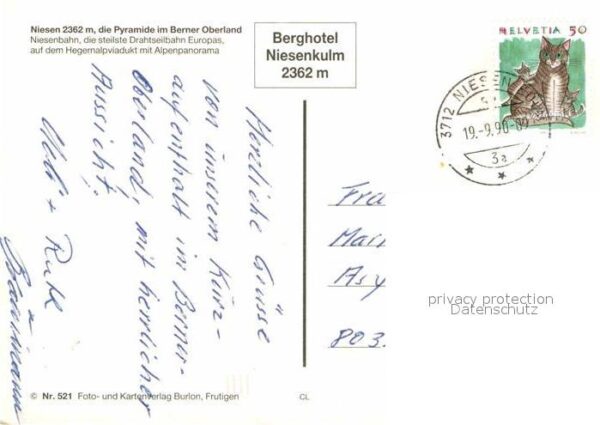 Niesen 2362 m, die Pyramide im Berner Oberland
Niesenbahn, die steilste Drahtseilbahn Europas,
auf dem Hegernalpviadukt mit Alpenpanorama
Berghotel
Niesenkulm
2362 m
HELVETIA 50
3712 NIESEN
19.-9.90-
3a
Herzliche Grüsse
von unserem Kurz-
aufenthalt im Berner-
Oberland, mit herrlicher
Aussicht!
+ Ruth
Fra
Mari
Asy
803
privacy protection
Datenschutz
© Nr. 521 Foto- und Kartenverlag Burlon, Frutigen
CL